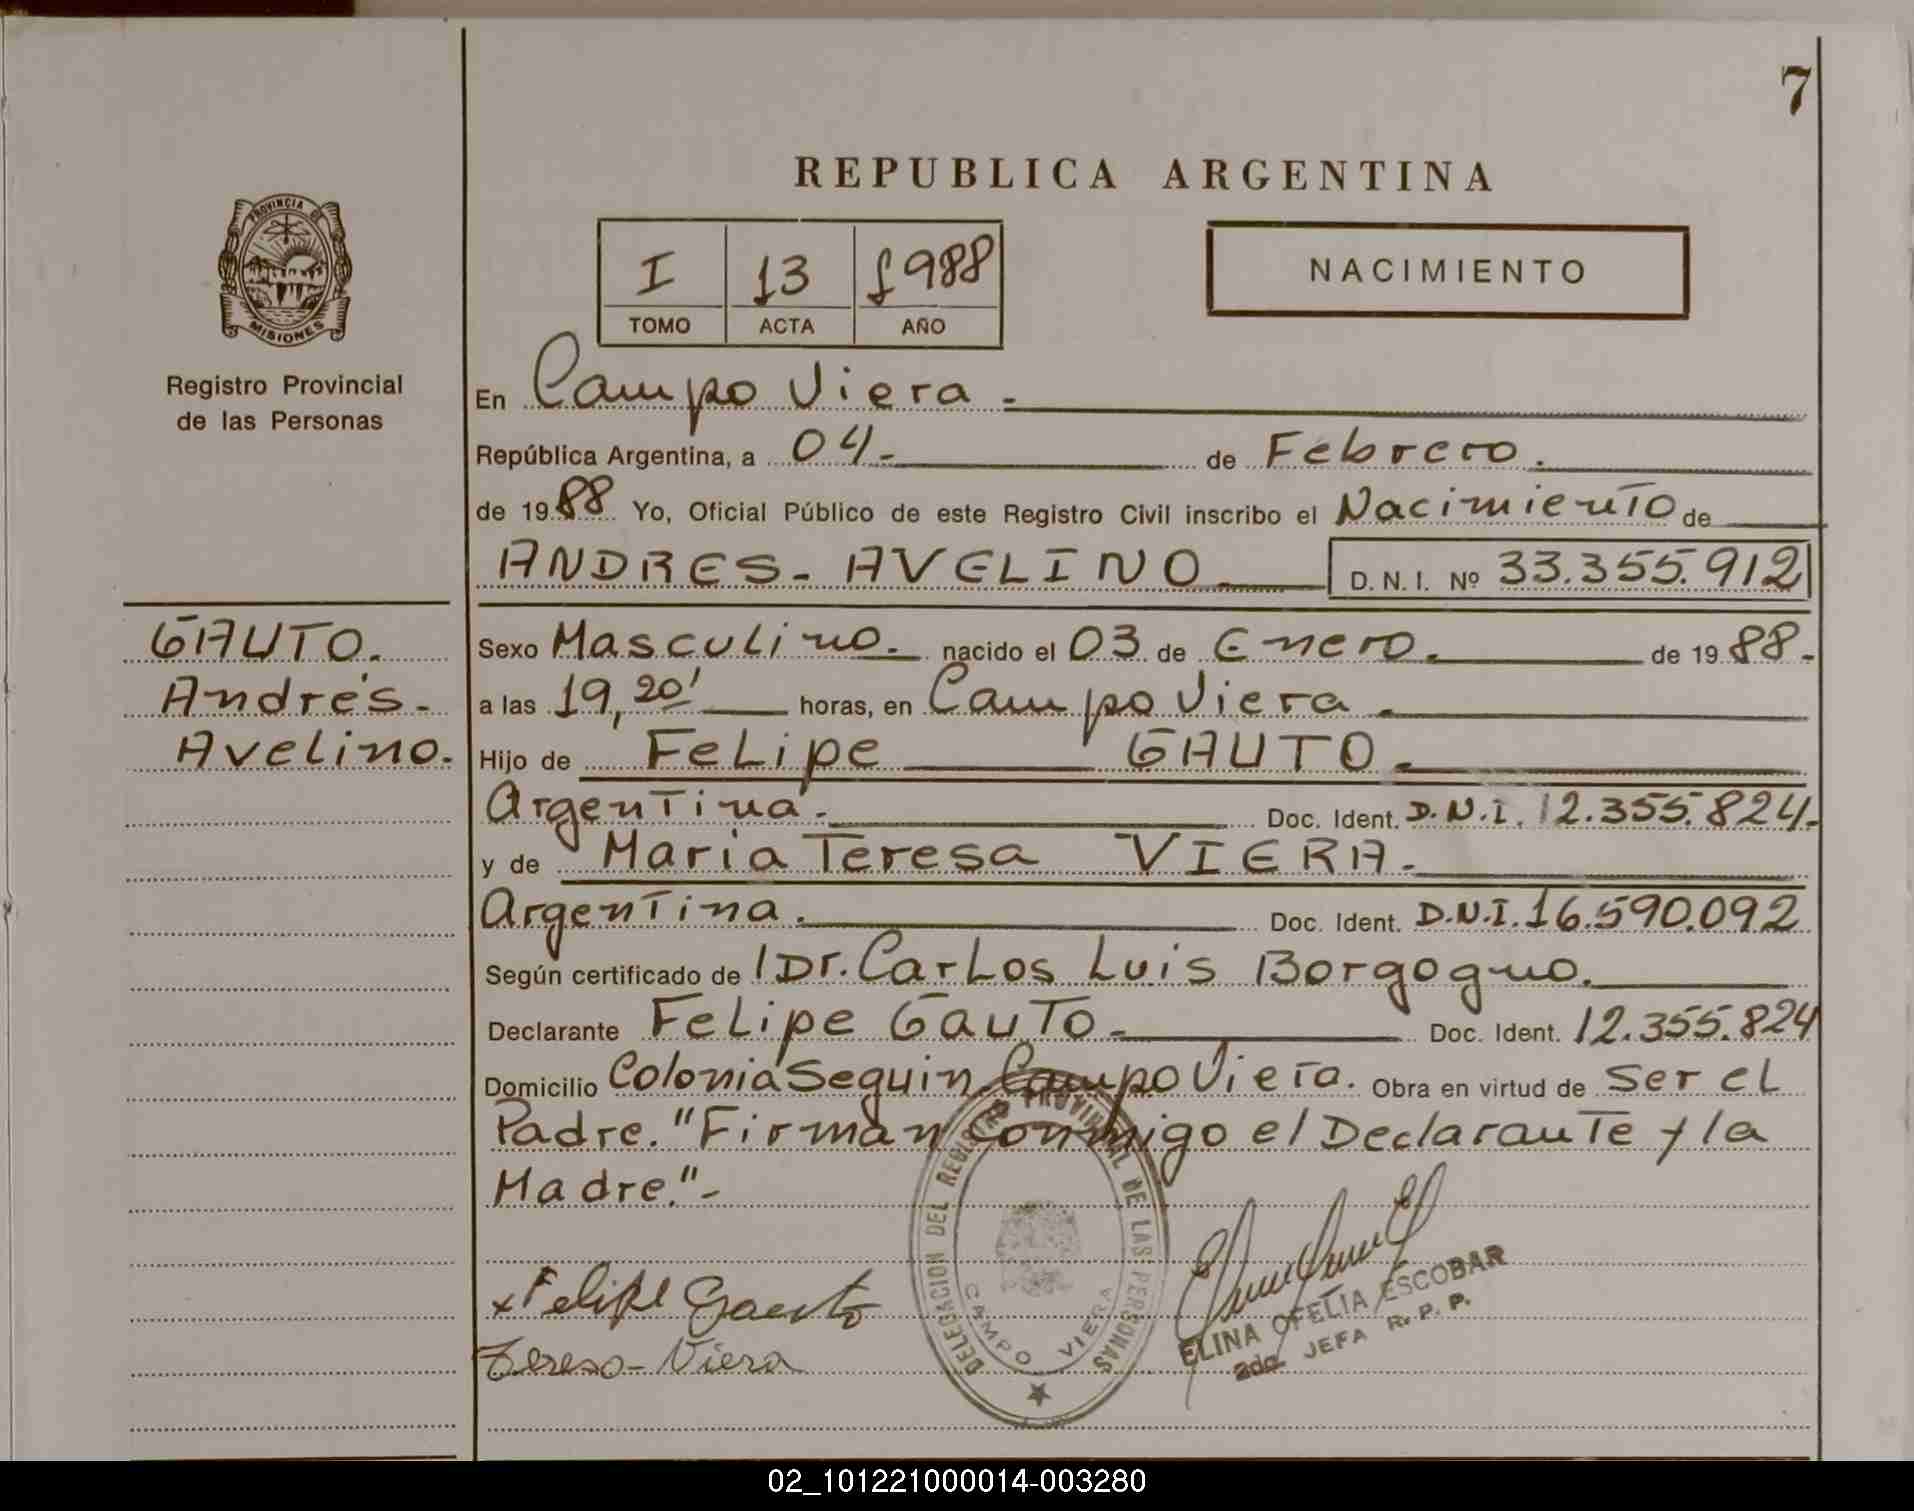 7
REPUBLICA ARGENTINA
PROVINCIA DE
MISIONES
Registro Provincial
de las Personas
I 13 1988
TOMO ACTA AÑO
NACIMIENTO
En Campo Viera.-
República Argentina, a 04.- de Febrero.
de 1988 Yo, Oficial Público de este Registro Civil inscribo el Nacimiento de
ANDRES - AVELINO D. N. I. Nº 33.355.912
GAUTO.
Andrés-
Avelino.
Sexo Masculino. nacido el 03 de Enero. de 1988.
a las 19,20' horas, en Campo Viera.
Hijo de Felipe GAUTO.
Argentina. Doc. Ident. D.N.I. 12.355.824.
y de Maria Teresa VIERA.
Argentina. Doc. Ident. D.N.I. 16.590.092
Según certificado de Dr. Carlos Luis Borgogno.
Declarante Felipe Gauto.- Doc. Ident. 12.355.824
Domicilio Colonia Seguin. Campo Viera. Obra en virtud de Ser el
Padre. "Firman conmigo el Declarante y la
Madre."-
x Felipe Gauto
Teresa-Viera
DELEGACION DEL REGISTRO PROVINCIAL DE LAS PERSONAS
CAMPO VIERA
ELINA OFELIA ESCOBAR
2da. JEFA R. P. P.
02_101221000014-003280